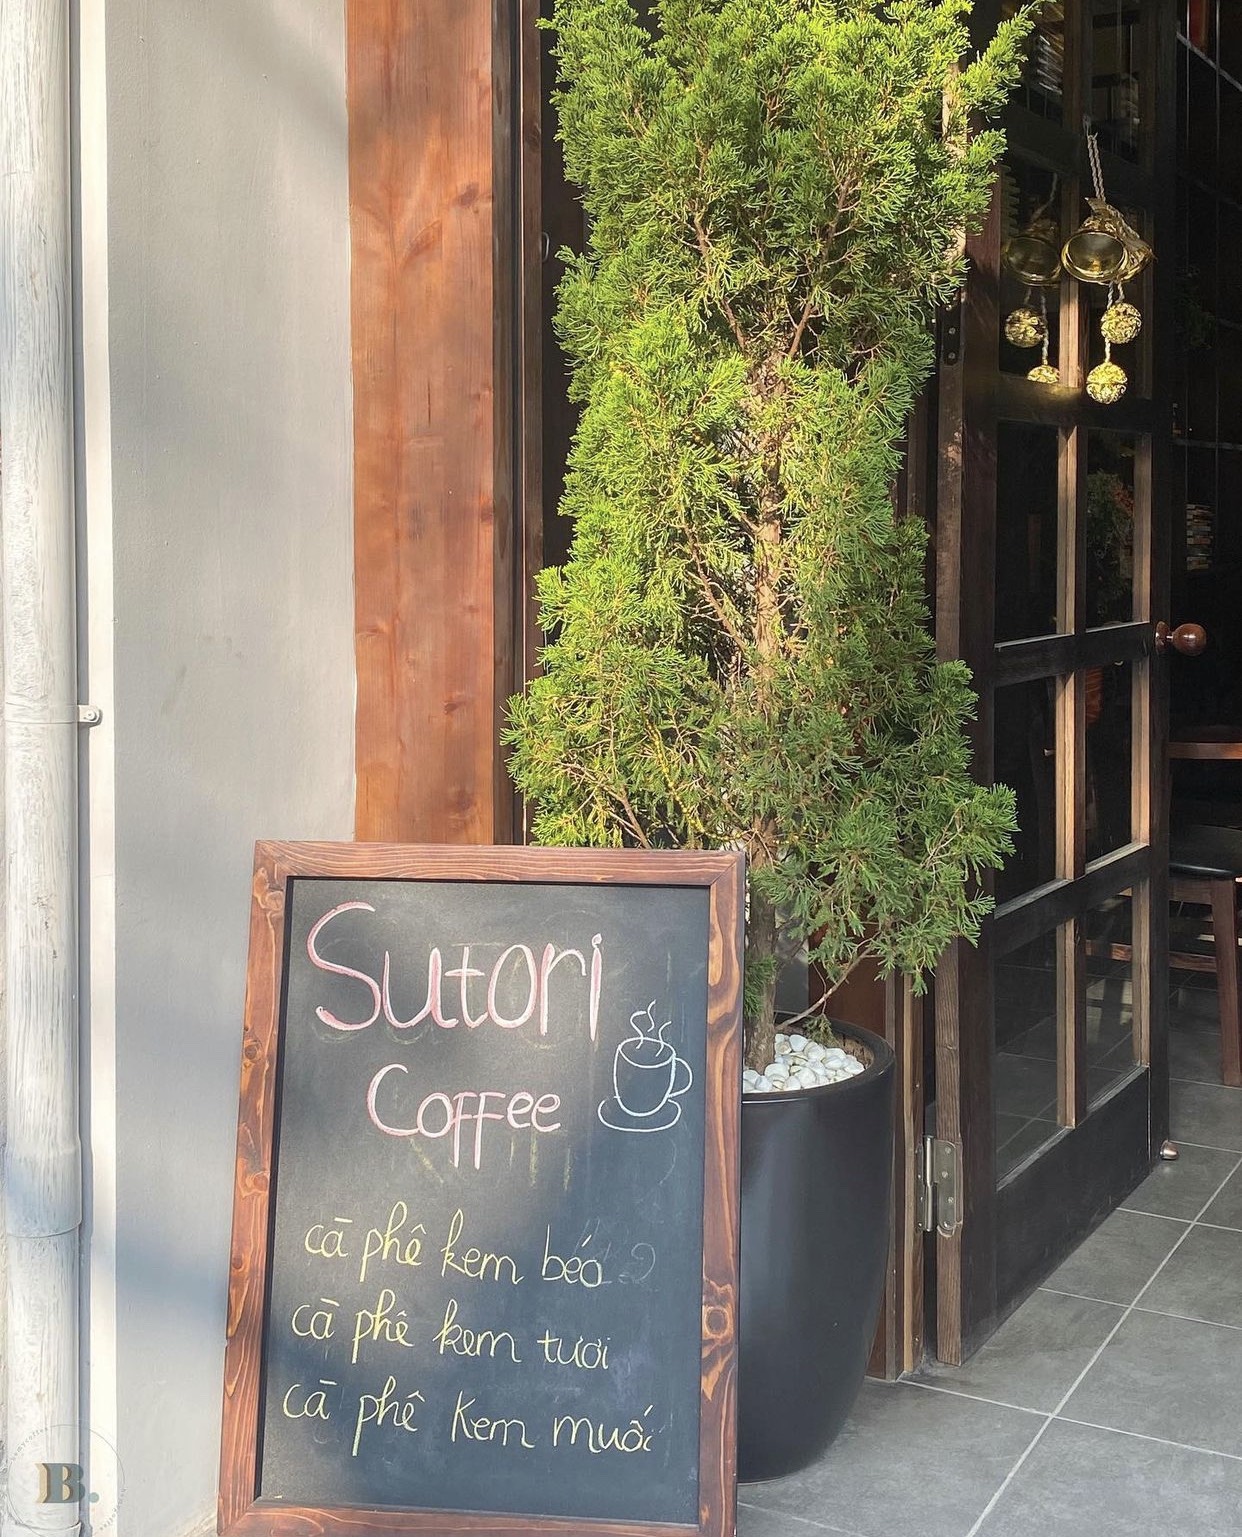 Sutori
Coffee
cà phê kem béo
cà phê kem tươi
cà phê kem muối
B.